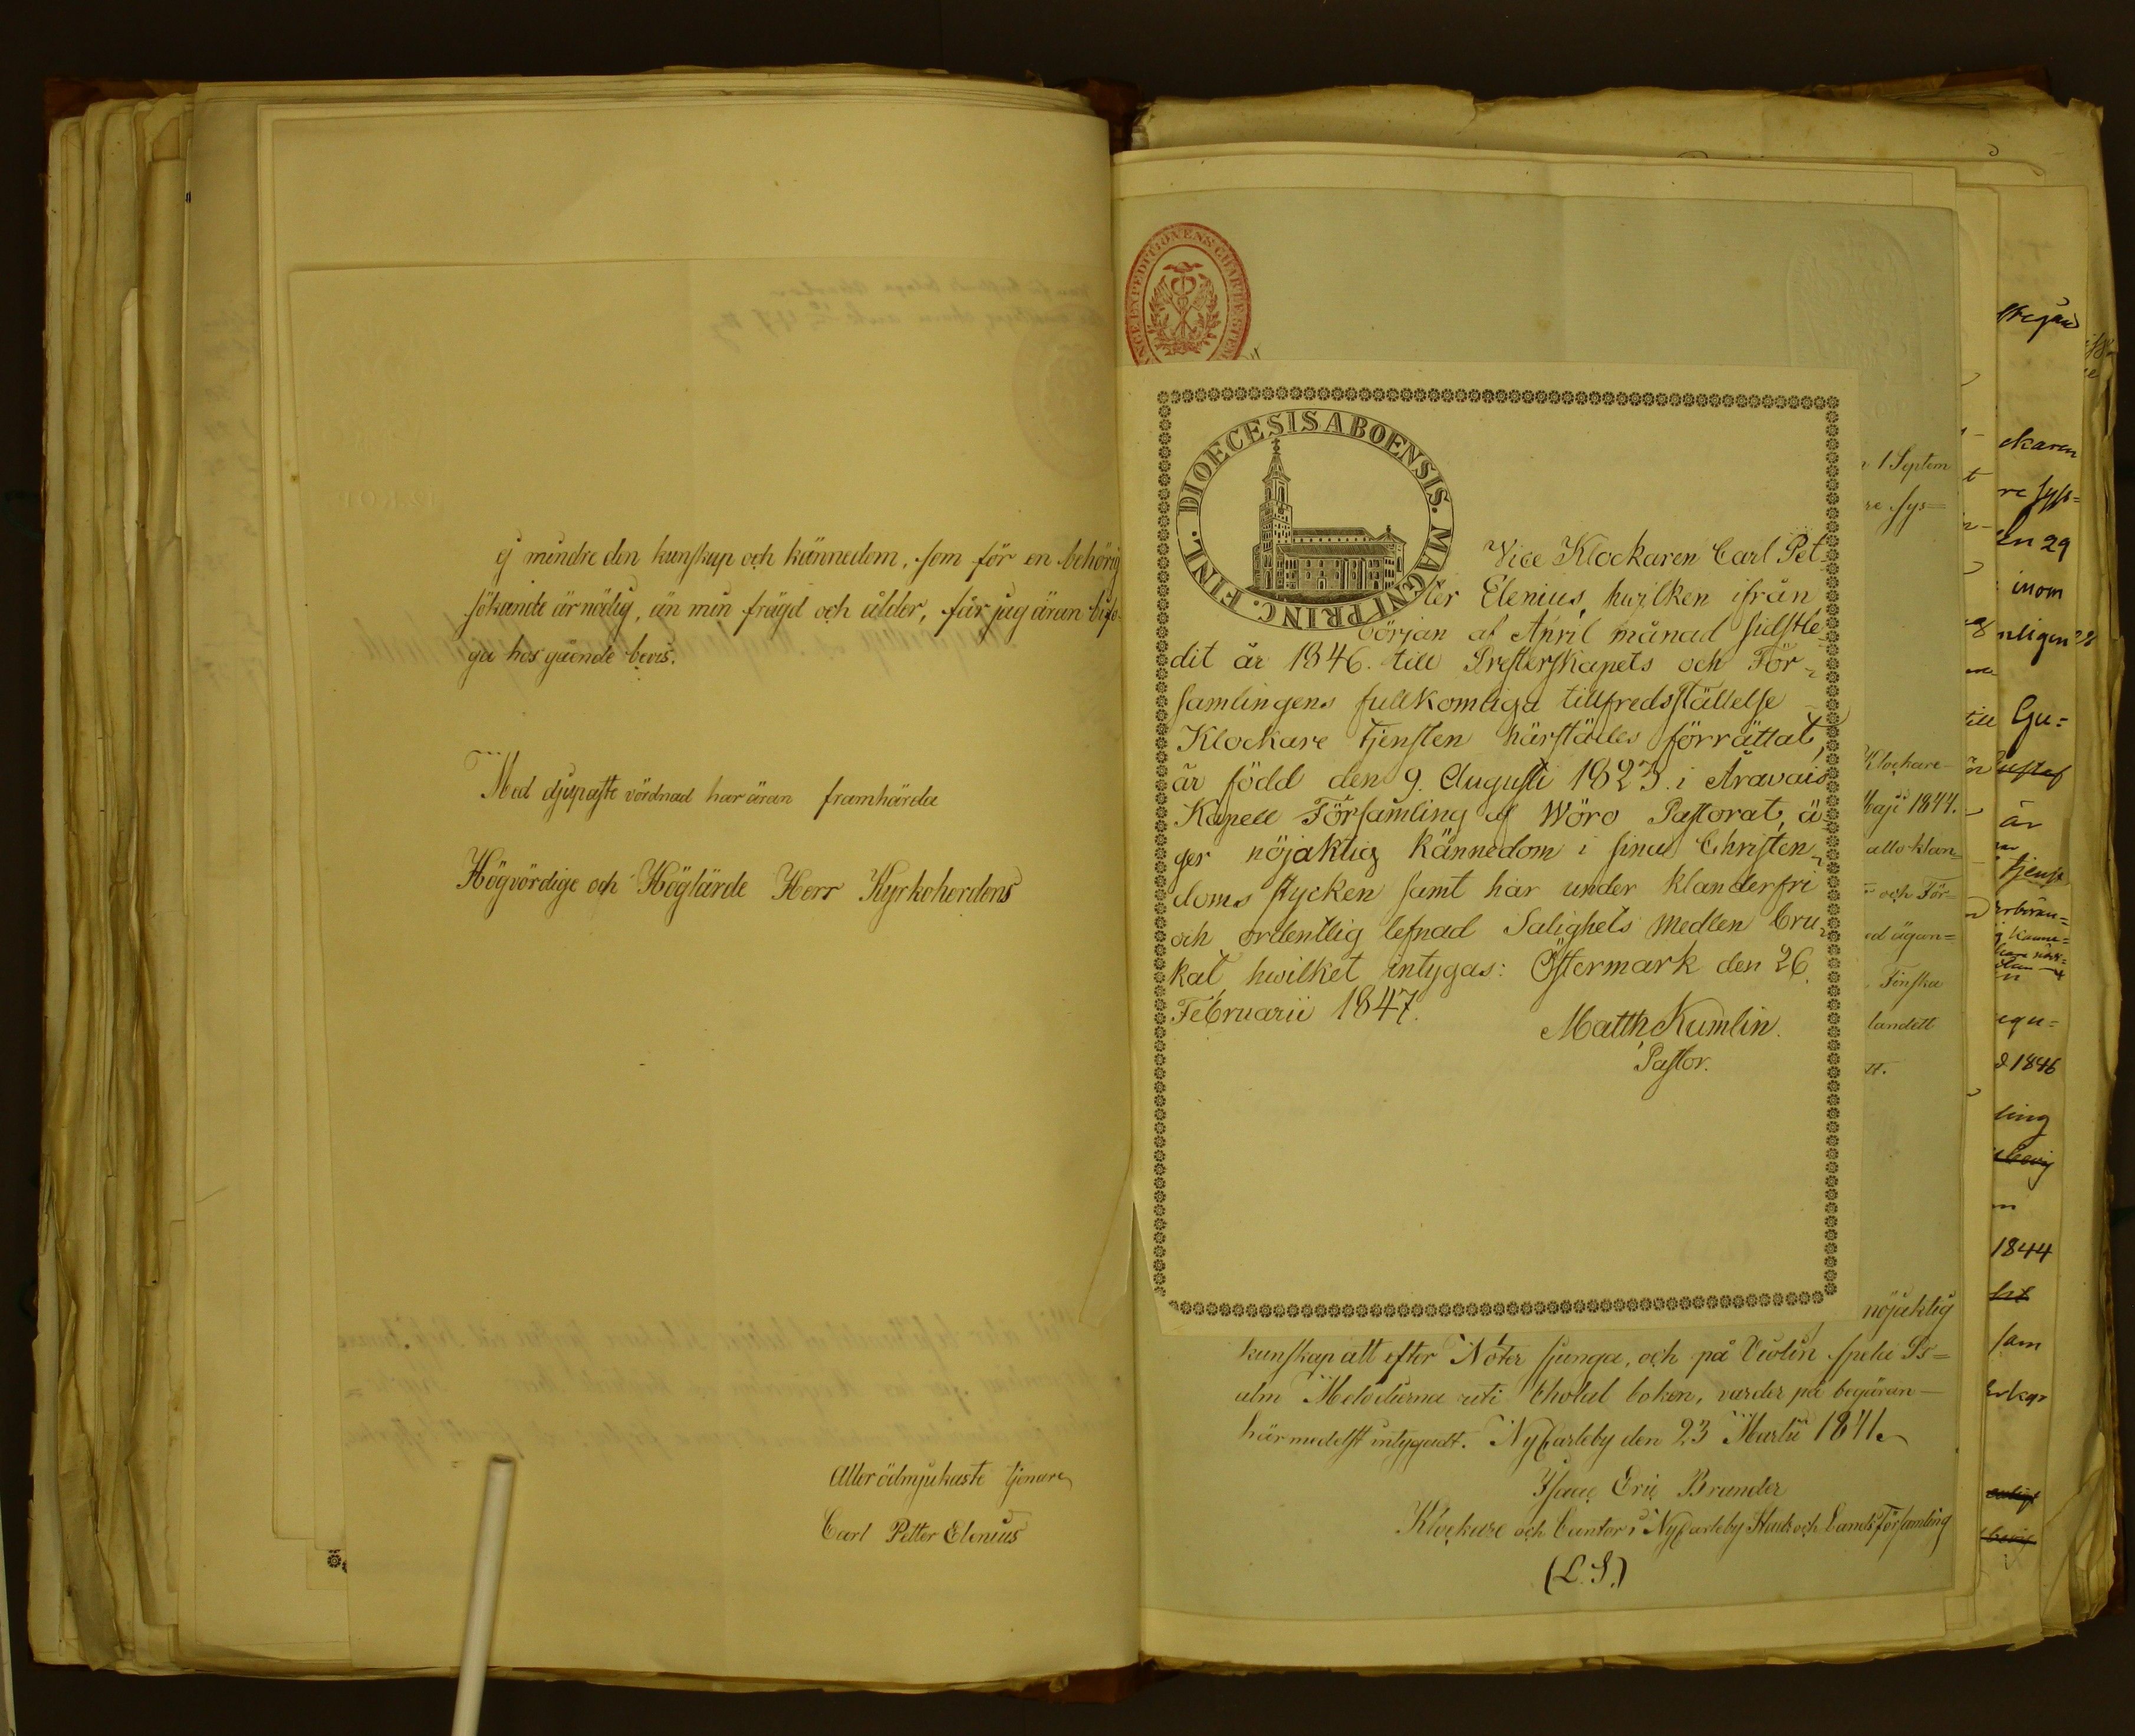 ej mindre den kunskap och kännedom, som för en behörig
sökande är nödig, än min frägd och ålder, får jag äran bifo-
ga hos gående bevis.
Med djupaste vördnad har äran framhärda
Högvördige och Höglärde Herr Kyrkoherdens
Aller ödmjukaste tjenare
Carl Petter Elenius
DIOECESIS ABOENSIS. MAGNI PRINC. FINL.
Vice Klockaren Carl Pet-
ter Elenius, hwilken ifrån
början af April månad sidstle-
dit år 1846. till Presterskapets och För-
samlingens fullkomliga tillfredsställelse
Klockare tjensten härstädes förrättat,
är född den 9. Augusti 1823. i Oravais
Kapell Församling af Wöro Pastorat, ä-
ger nöjaktig kännedom i sina Christen-
doms stycken samt har under klanderfri
och ordentlig lefnad Salighets medlen bru-
kat, hwilket intygas: Östermark den 26.
Februarii 1847.
Matth Kumlin.
Pastor.
1 Septem
re sys=
Klockare-
Maji 1844.
och För=
Finska
landett
nöjaktig
kunskap att efter Noter sjunga, och på Violin spela Ps=
alm Melodierna uti Choral boken, varder på begäran
härmedelst intygadt. NyCarleby den 23 Martii 1841.
Isaac Eric Brander
Klockare och Cantor i NyCarleby Stads och Lands Församling
(L.S.)
ckaren
re sys=
en 29
inom
nligen
till Gu=
ustaf
är
tjenst
equ=
1846
ling
1844
sam